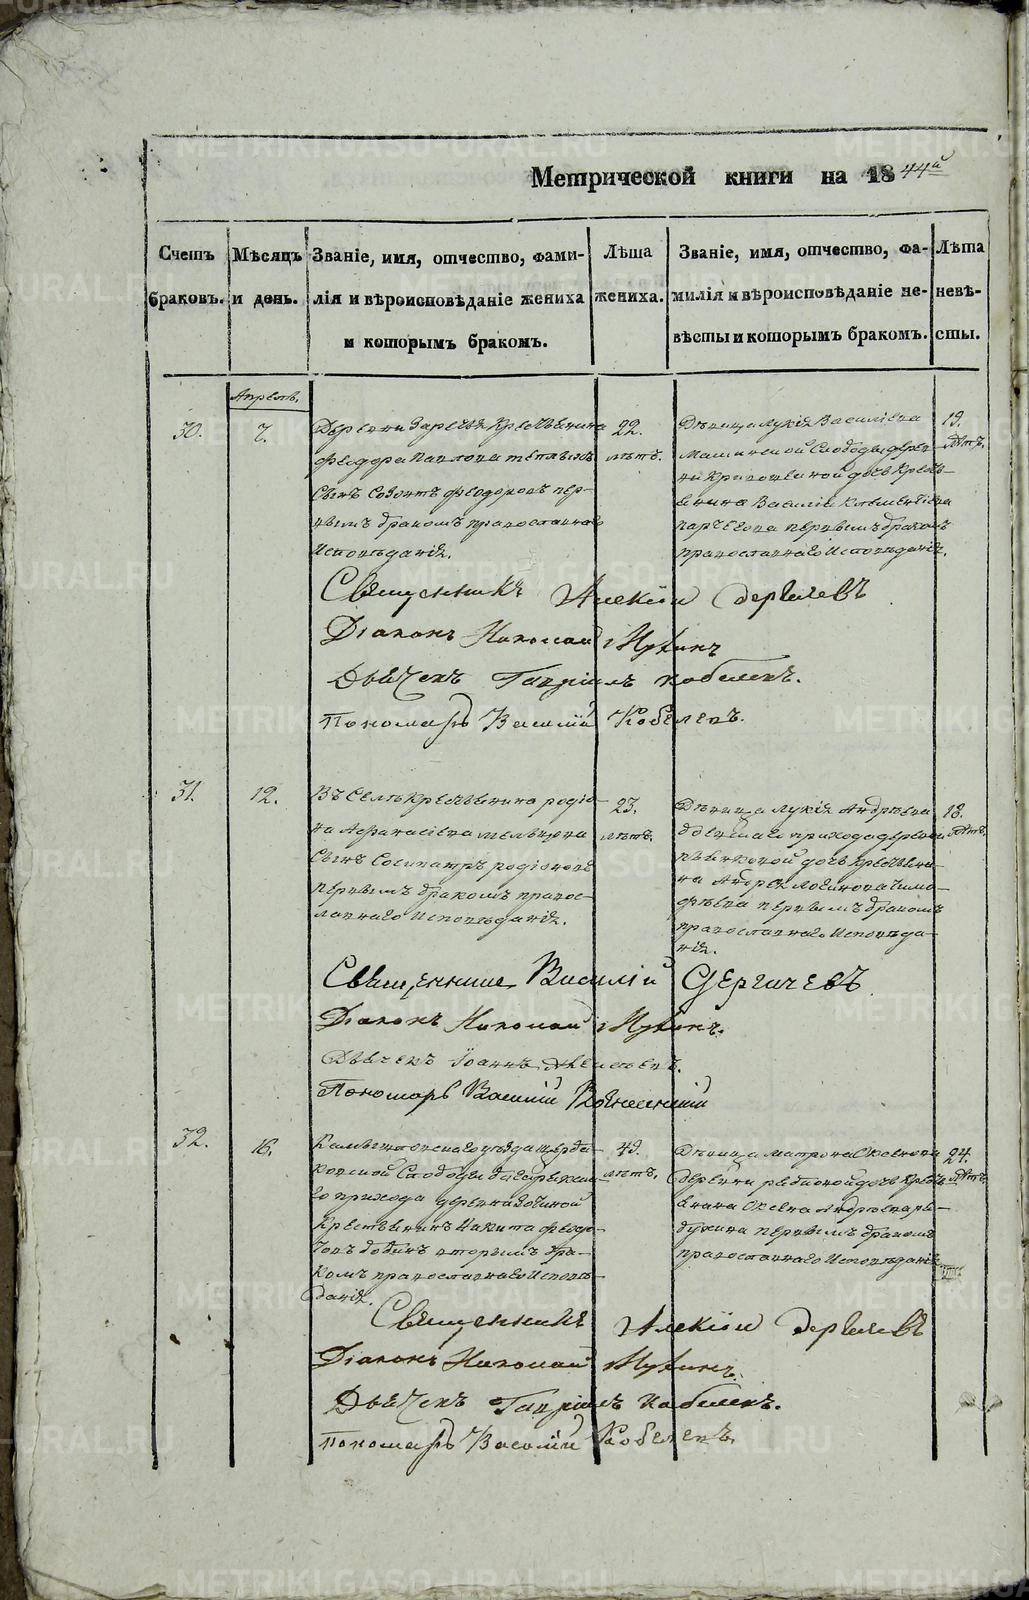 Метрической книги на 1844й
Счетъ браковъ.
Мѣсяцъ и день.
Званіе, имя, отчество, фами-
лія и вѣроисповѣданіе жениха
и которымъ бракомъ.
Лѣта жениха.
Званіе, имя, отчество, фа-
милія и вѣроисповѣданіе не-
вѣсты и которымъ бракомъ.
Лѣта невѣ-
сты.
Апрель.
30.
7.
Деревни Заречья Крестьянина
Феодора Павлова
Сынъ Созонтъ Феодоровъ пер-
вымъ бракомъ православнаго
Исповѣданія.
22.
лѣтъ.
Дѣвица Лукія Василіева
Слободы дерев-
ни дочь Кресть-
янина Василія Климентіева
первымъ бракомъ
православнаго Исповѣданія.
19.
лѣтъ.
Священникъ Алексій Дергачевъ
Діаконъ Николай Мухинъ
Дьячекъ Гавріилъ Кобелевъ.
Пономарь Василій Кобелевъ.
31.
12.
Въ Селѣ Крестьянина Родіо-
на Афанасіева
Сынъ Сосипатръ Родіоновъ
первымъ бракомъ правос-
лавнаго Исповѣданія.
23.
лѣтъ.
Дѣвица Лукія Андрѣева
прихода деревни
дочь Крестьяни-
на Андрея Логинова Тимо-
фѣева первымъ бракомъ
православнаго Исповѣда-
нія.
18.
лѣтъ.
Священникъ Василій Дергачевъ
Діаконъ Николай Мухинъ.
Дьячекъ Іоаннъ
Пономарь Василій Вознесенскій
32.
16.
Камышловскаго уѣзда Щерба-
ковской Слободы
го прихода деревни
Крестьянинъ Никита Феодо-
товъ вторымъ бра-
комъ православнаго Исповѣ-
данія.
лѣтъ.
Дѣвица Матрона
Деревни дочь Кресть-
янина
первымъ бракомъ
православнаго Исповѣданія
24.
лѣтъ.
Священникъ Алексій Дергачевъ
Діаконъ Николай Мухинъ.
Дьячекъ Гавріилъ Кобелевъ.
Пономарь Василій Кобелевъ.
METRIKI.GASO-URAL.RU